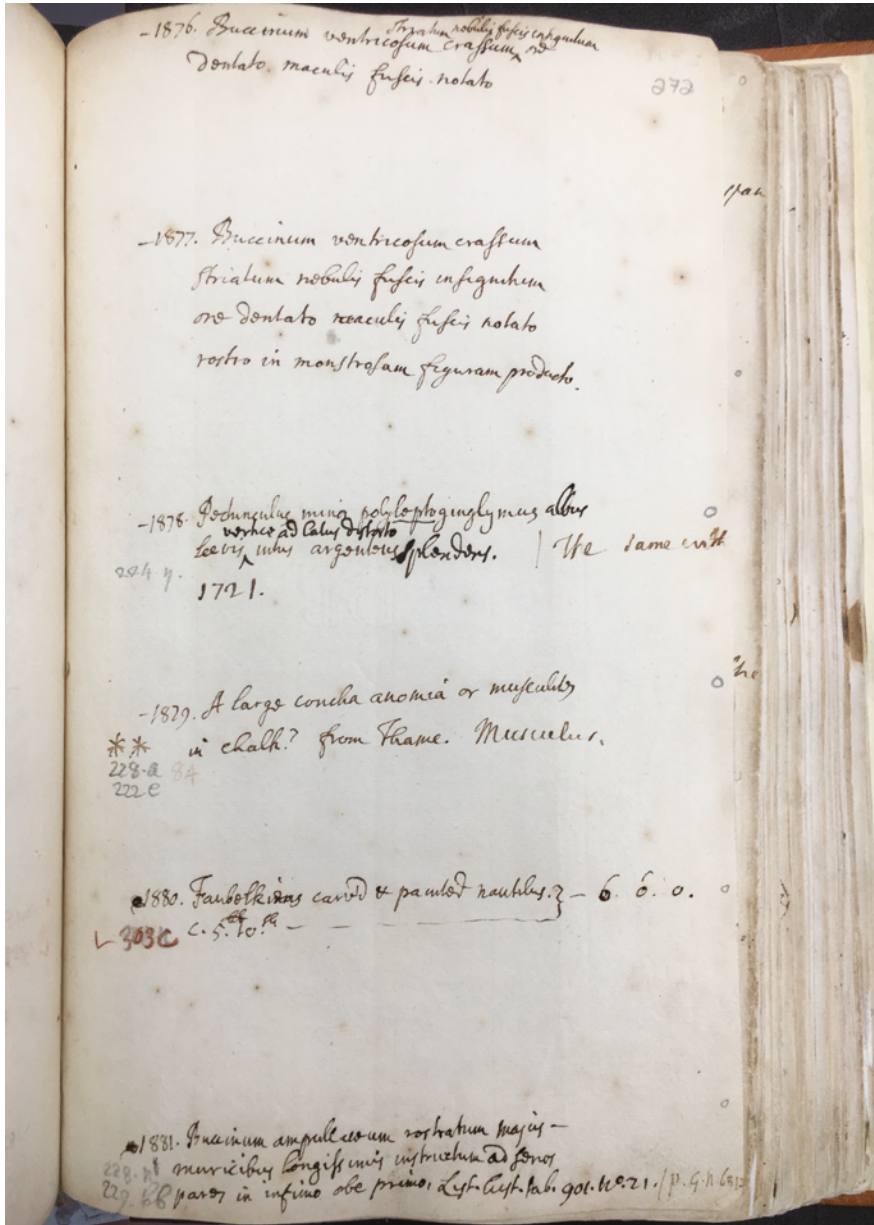 striatum nebulis fuscis insignitum
-1876. Buccinum ventricosum crassum ^ ore
dentato maculis fuscis notato
272
-1877. Buccinum ventricosum crassum
striatum nebulis fuscis insignitum
ore dentato maculis fuscis notato
rostro in monstrosam figuram producto.
-1878. Pectunculus minor polyleptoginglymus albus
vertice ad latus distorto
laevis ^ intus argenteus splendens. | The same with
224 η.
1721.
the
-1879. A large concha anomia or musculites
** in chalk? from Thame. Musculus.
228.a 84
222 e
-1880. Faubelkins carv'd & painted nautilus. } - 6. 0. 0.
303c c. 5. 10.
-1881. Buccinum ampullaceum rostratum majus -
muricibus longissimis instructum ad senos
228.
229. pares in infimo obe primo. List. hist. tab. 901. no. 21. / p. G. n.